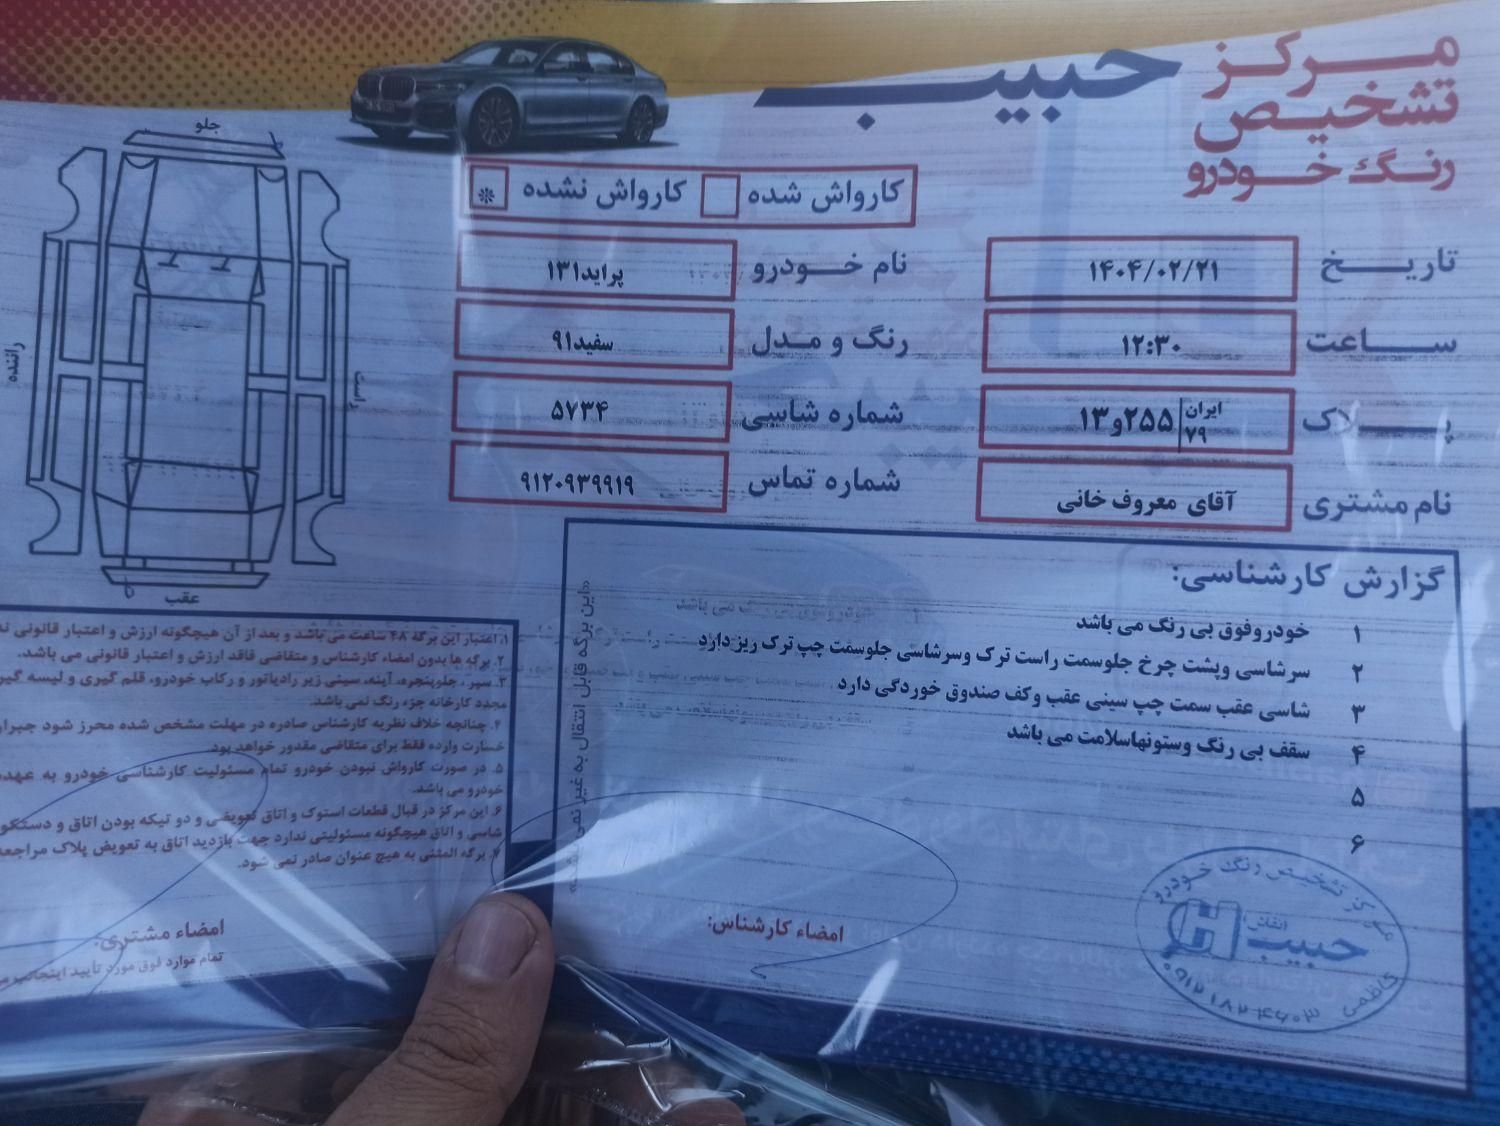 مرکز
تشخیص
رنگ خودرو
حبیب
کارواش شده
کارواش نشده *
تاریخ ۱۴۰۴/۰۲/۲۱
نام خودرو پراید۱۳۱
ساعت ۱۲:۳۰
رنگ و مدل سفید۹۱
پلاک ایران ۷۹ ۲۵۵و۱۳
شماره شاسی ۵۷۳۴
نام مشتری آقای معروف خانی
شماره تماس ۹۱۲۰۹۳۹۹۱۹
جلو
راننده
راست
عقب
گزارش کارشناسی:
۱ خودروفوق بی رنگ می باشد
۲ سرشاسی وپشت چرخ جلوسمت راست ترک وسرشاسی جلوسمت چپ ترک ریزدارد
۳ شاسی عقب سمت چپ سینی عقب وکف صندوق خوردگی دارد
۴ سقف بی رنگ وستونهاسلامت می باشد
۵
۶
امضاء کارشناس:
«این برگه قابل انتقال به غیر نمی
مرکز تشخیص رنگ خودرو
حبیب
(نقاش)
کاظمی
۰۹۱۲۱۸۲۴۶۰۳
۱. اعتبار این برگه ۴۸ ساعت می باشد و بعد از آن هیچگونه ارزش و اعتبار قانونی
۲. برگه ها بدون امضاء کارشناس و متقاضی فاقد ارزش و اعتبار قانونی می باشد.
۳. سپر، جلوپنجره، آینه، سینی زیر رادیاتور و رکاب خودرو، قلم گیری و لیسه گیری
مجدد کارخانه جزء رنگ نمی باشد.
۴. چنانچه خلاف نظریه کارشناس صادره در مهلت مشخص شده محرز شود جبران
خسارت وارده فقط برای متقاضی مقدور خواهد بود.
۵. در صورت کارواش نبودن خودرو تمام مسئولیت کارشناسی خودرو به عهده
خودرو می باشد.
۶. این مرکز در قبال قطعات استوک و اتاق تعویضی و دو تیکه بودن اتاق و دستکو
شاسی و اتاق هیچگونه مسئولیتی ندارد جهت بازدید اتاق به تعویض پلاک مراجعه
۷. برگه المثنی به هیچ عنوان صادر نمی شود.
امضاء مشتری:
تمام موارد فوق مورد تأیید اینجانب